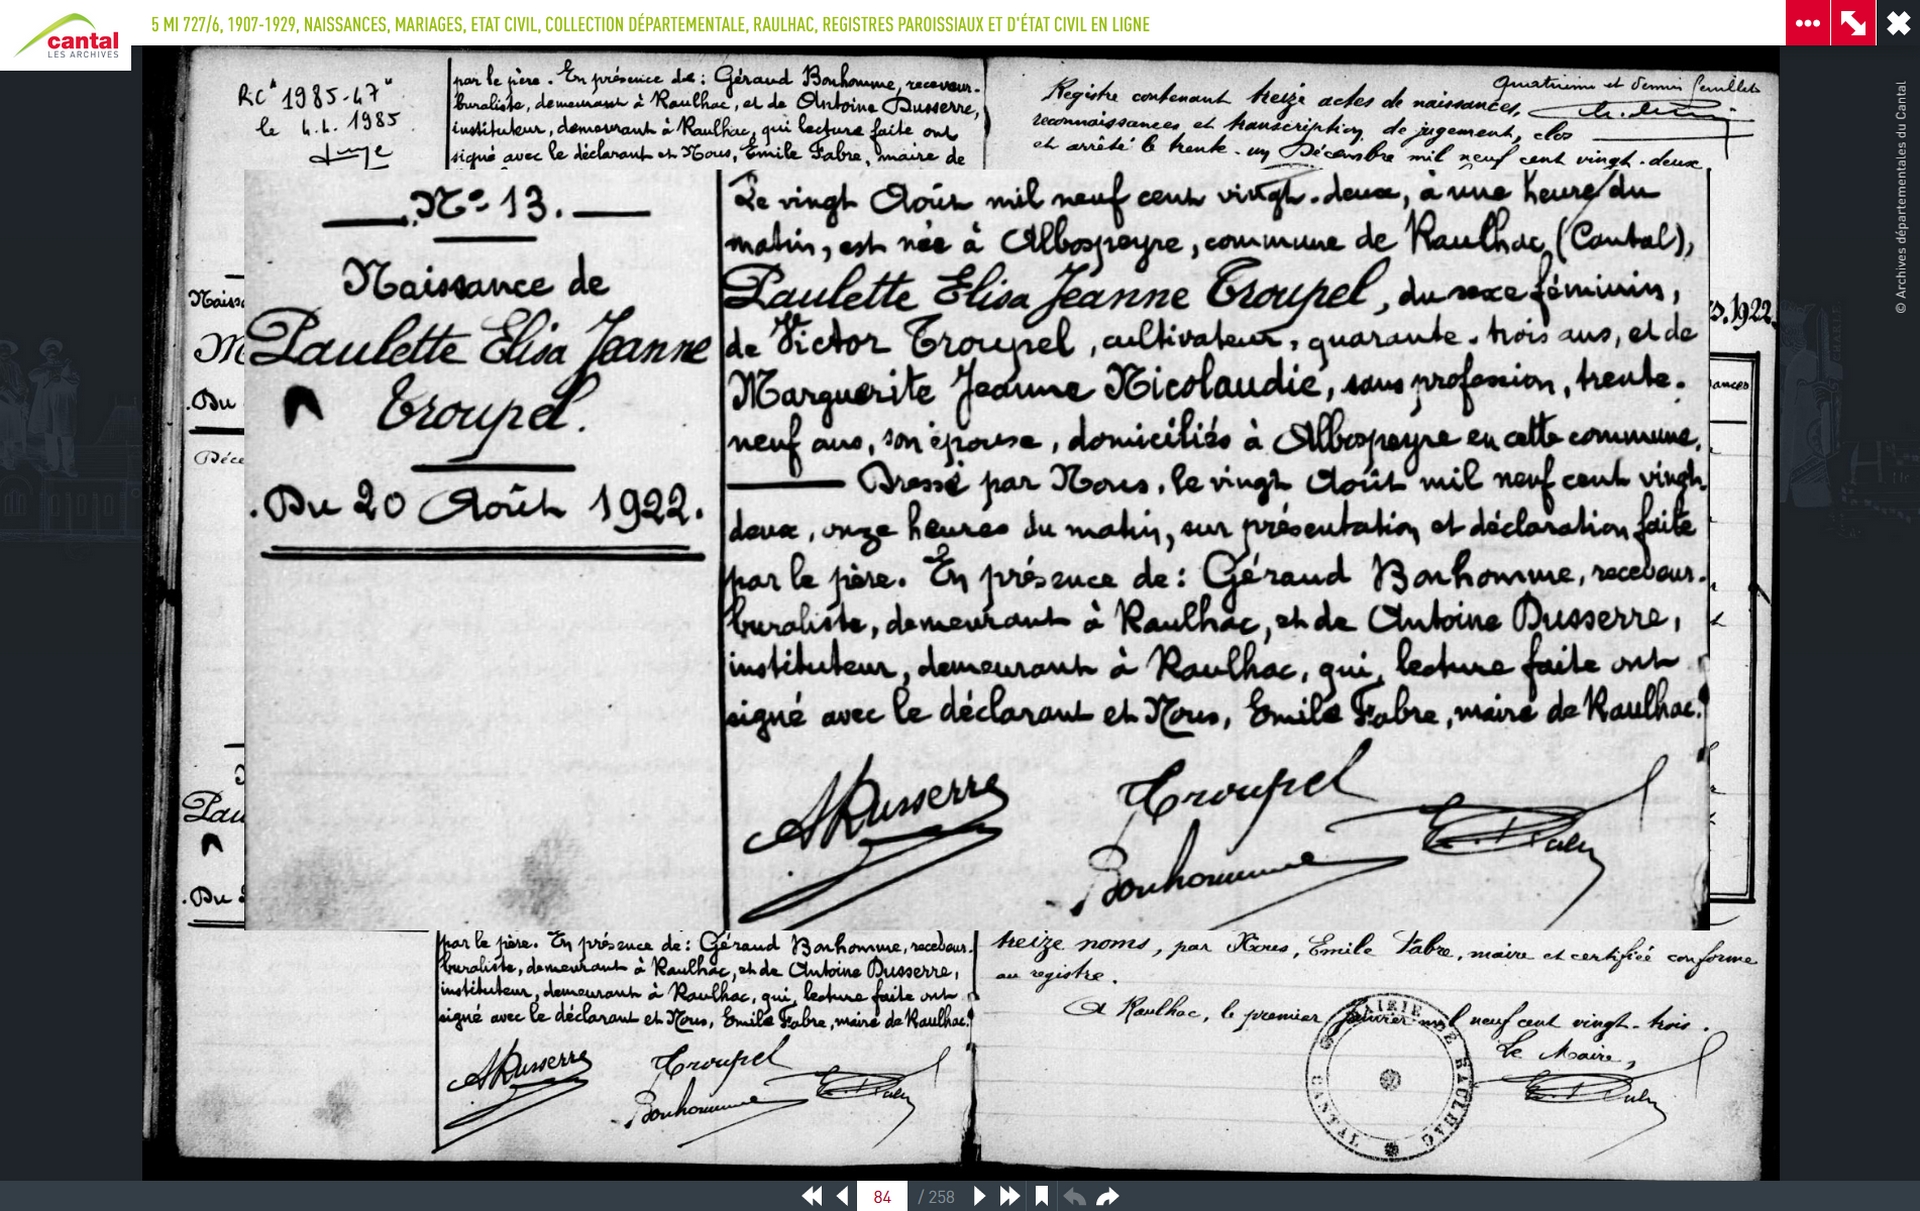 5 MI 727/6, 1907-1929, NAISSANCES, MARIAGES, ETAT CIVIL, COLLECTION DÉPARTEMENTALE, RAULHAC, REGISTRES PAROISSIAUX ET D'ÉTAT CIVIL EN LIGNE
cantal
LES ARCHIVES
© Archives départementales du Cantal
RC 1985-47
le 4.4.1985
par le père. En présence de: Géraud Bonhomme, receveur-
buraliste, demeurant à Raulhac, et de Antoine Dusserre,
instituteur, demeurant à Raulhac, qui lecture faite ont
signé avec le déclarant et Nous, Emile Fabre, maire de
Quatrième et dernier feuillet
Registre contenant treize actes de naissances,
reconnaissances et transcription de jugement, clos
et arrêté le trente-un Décembre mil neuf cent vingt-deux
N° 13.
Naissance de
Paulette Elisa Jeanne
Troupel.
Du 20 Août 1922.
Le vingt Août mil neuf cent vingt-deux, à une heure du
matin, est née à Albospeyre, commune de Raulhac (Cantal),
Paulette Elisa Jeanne Troupel, du sexe féminin,
de Victor Troupel, cultivateur, quarante-trois ans, et de
Marguerite Jeanne Nicolaudie, sans profession, trente-
neuf ans, son épouse, domiciliés à Albospeyre en cette commune.
Dressé par Nous, le vingt Août mil neuf cent vingt-
deux, onze heures du matin, sur présentation et déclaration faite
par le père. En présence de: Géraud Bonhomme, receveur-
buraliste, demeurant à Raulhac, et de Antoine Dusserre,
instituteur, demeurant à Raulhac, qui, lecture faite ont
signé avec le déclarant et Nous, Emile Fabre, maire de Raulhac.
ADusserre
Troupel
Bonhomme
Naiss
M
.Du
Déce
Pau
.Du 2
1922.
ances
par le père. En présence de: Géraud Bonhomme, receveur-
buraliste, demeurant à Raulhac, et de Antoine Dusserre,
instituteur, demeurant à Raulhac, qui, lecture faite ont
signé avec le déclarant et Nous, Emile Fabre, maire de Raulhac.
ADusserre
Troupel
Bonhomme
treize noms, par Nous, Emile Fabre, maire et certifiée conforme
au registre.
A Raulhac, le premier Janvier mil neuf cent vingt-trois.
Le Maire,
MAIRIE DE RAULHAC
CANTAL
84 / 258